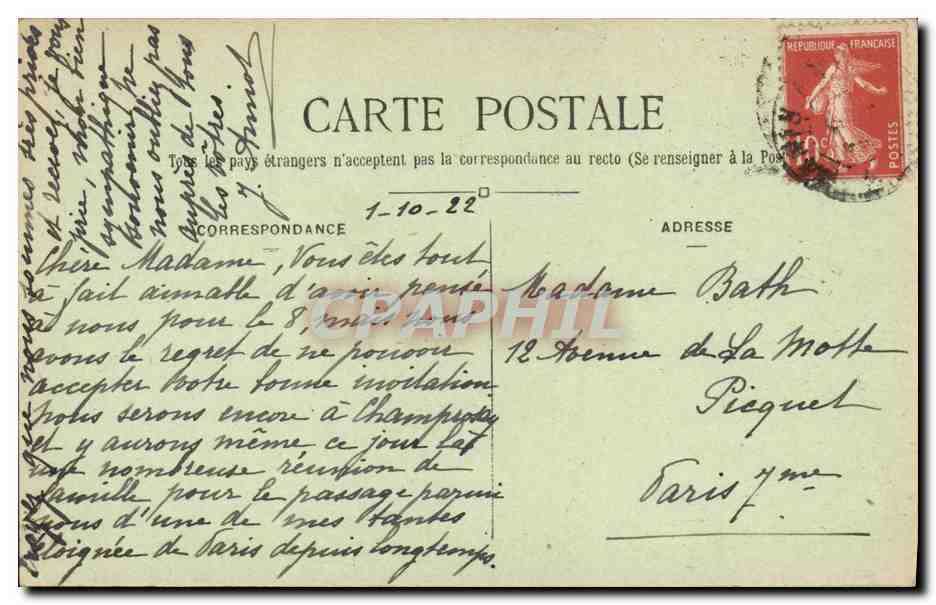 CARTE POSTALE
Tous les pays étrangers n'acceptent pas la correspondance au recto (Se renseigner à la Pos
REPUBLIQUE FRANÇAISE
10c
POSTES
1-10-22
CORRESPONDANCE
Chère Madame, Vous êtes tout
à fait aimable d'avoir pensé
à nous pour le 8, mais nous
avons le regret de ne pouvoir
accepter votre bonne invitation
nous serons encore à Champrosay
et y aurons même ce jour là
une nombreuse réunion de
famille pour le passage parmi
nous d'une de mes tantes
éloignée de Paris depuis longtemps.
que nous sommes très prises
et recevez, je vous
prie, mon bien
sympathique
souvenir, ne
nous oubliez pas
auprès de tous
les vôtres.
ADRESSE
Madame Bath
12 Avenue de La Motte
Picquet
Paris 7me
CPAPHIL